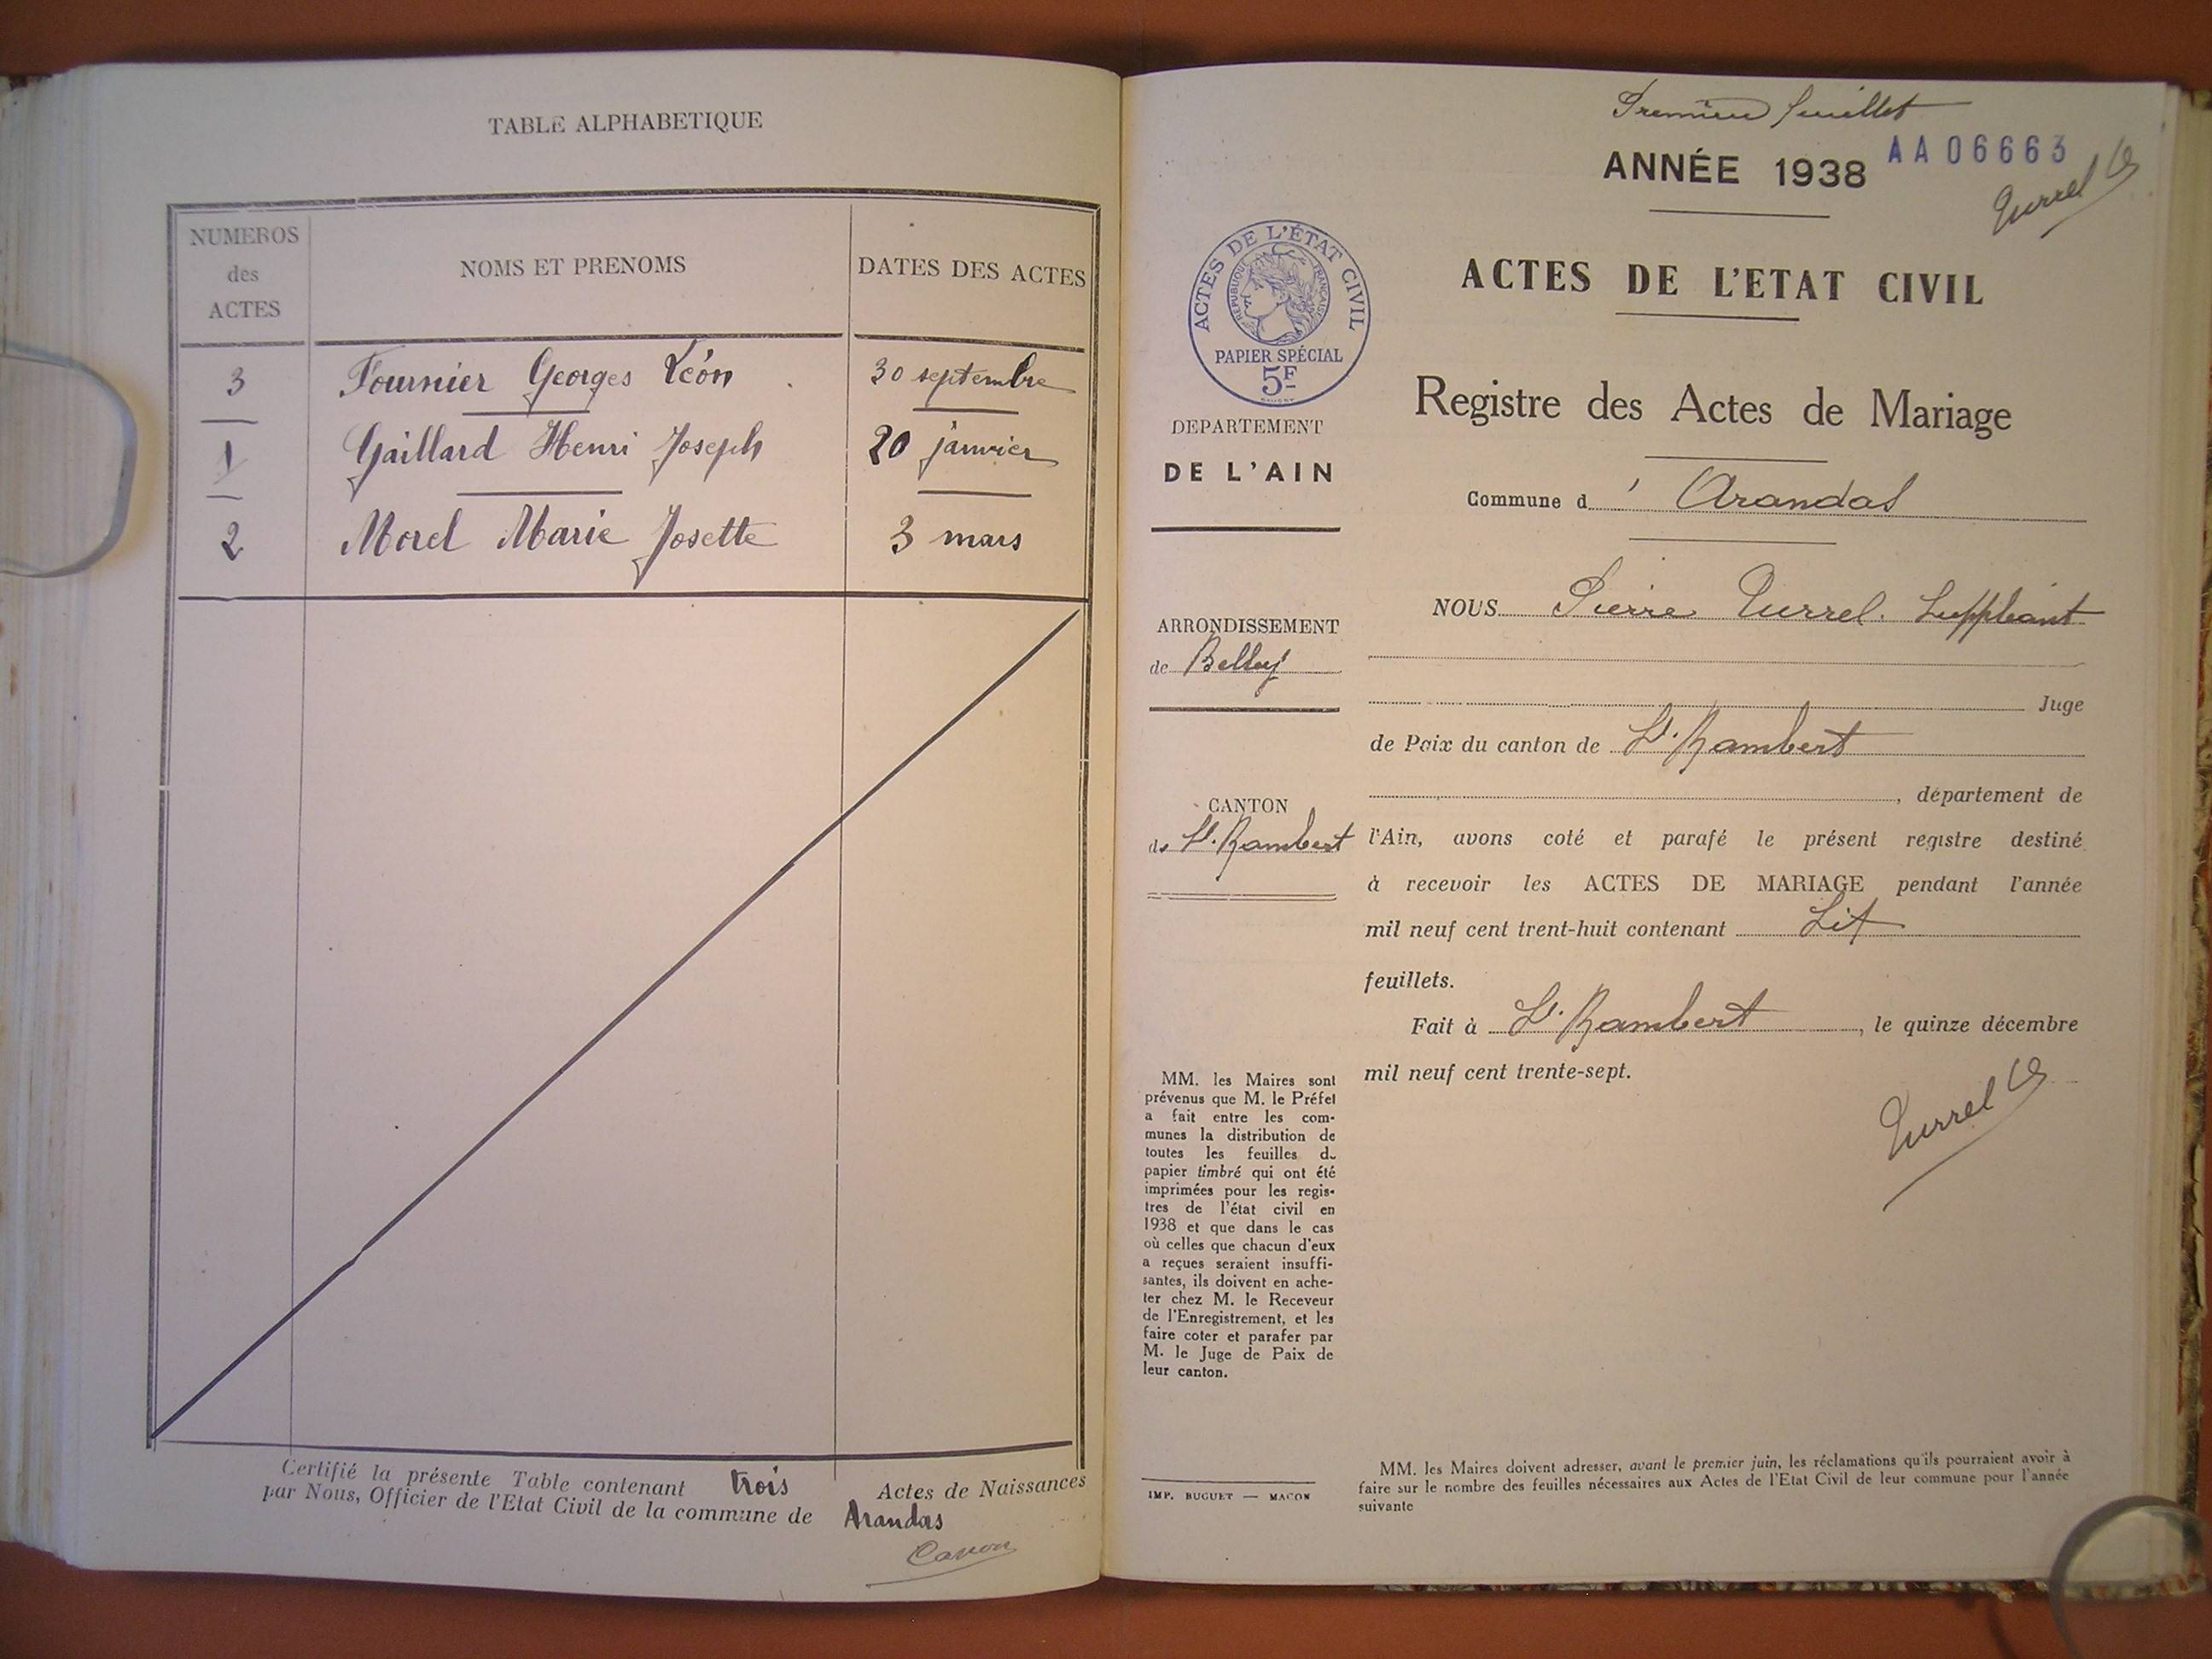 TABLE ALPHABETIQUE
NUMEROS des ACTES
NOMS ET PRENOMS
DATES DES ACTES
3 Fournier Georges Léon 30 septembre
1 Gaillard Henri Joseph 20 janvier
2 Morel Marie Josette 3 mars
Certifié la présente Table contenant trois Actes de Naissances
par Nous, Officier de l'Etat Civil de la commune de Arandas
Premier feuillet
ANNÉE 1938 AA06663
Turrel
ACTES DE L'ÉTAT CIVIL
RÉPUBLIQUE FRANÇAISE
PAPIER SPÉCIAL
5F
DEPARTEMENT
DE L'AIN
ARRONDISSEMENT
de Belley
CANTON
de St. Rambert
MM. les Maires sont
prévenus que M. le Préfet
a fait entre les com-
munes la distribution de
toutes les feuilles de
papier timbré qui ont été
imprimées pour les regis-
tres de l'état civil en
1938 et que dans le cas
où celles que chacun d'eux
a reçues seraient insuffi-
santes, ils doivent en ache-
ter chez M. le Receveur
de l'Enregistrement, et les
faire coter et parafer par
M. le Juge de Paix de
leur canton.
IMP. BUGUET — MACON
ACTES DE L'ETAT CIVIL
Registre des Actes de Mariage
Commune d' Arandas
NOUS Pierre Turrel. Suppléant
Juge
de Paix du canton de St. Rambert
, département de
l'Ain, avons coté et parafé le présent registre destiné
à recevoir les ACTES DE MARIAGE pendant l'année
mil neuf cent trent-huit contenant Six
feuillets.
Fait à St. Rambert, le quinze décembre
mil neuf cent trente-sept.
Turrel
MM. les Maires doivent adresser, avant le premier juin, les réclamations qu'ils pourraient avoir à
faire sur le nombre des feuilles nécessaires aux Actes de l'Etat Civil de leur commune pour l'année
suivante